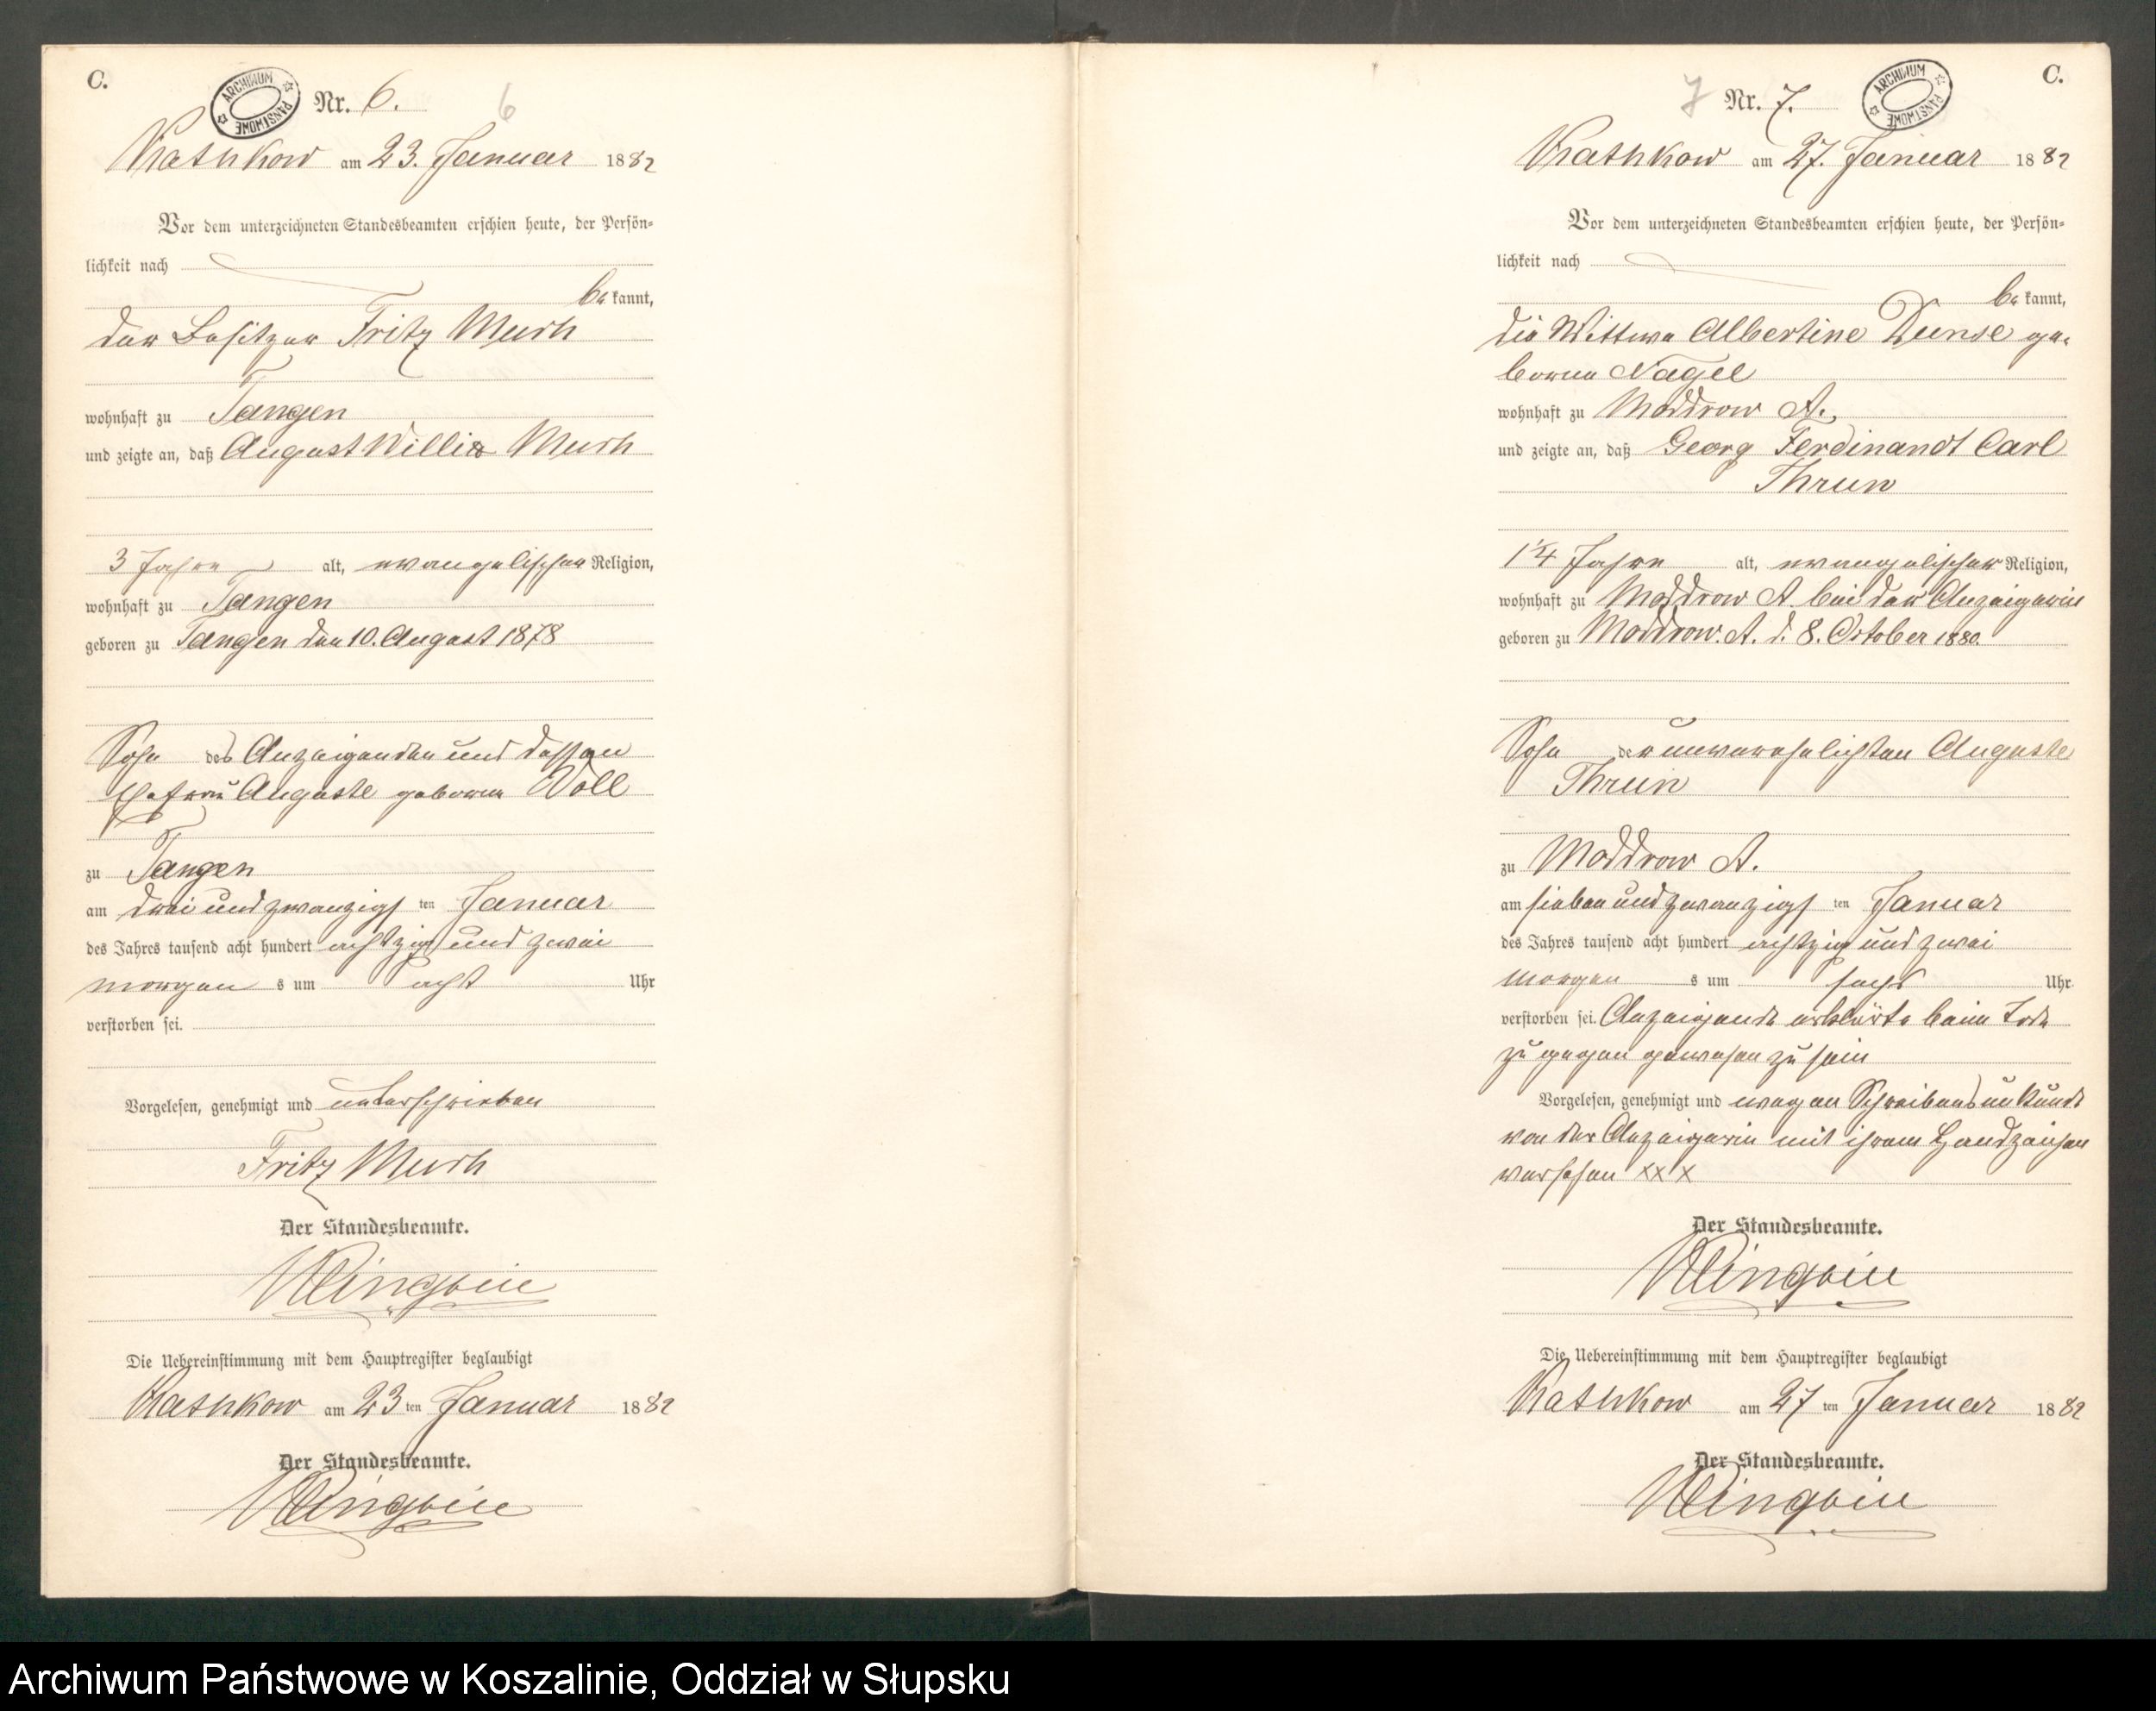 C.
ARCHIWUM PAŃSTWOWE
Nr. 6. 6
Rathkow am 23. Januar 1882
Vor dem unterzeichneten Standesbeamten erschien heute, der Persön-
lichkeit nach
bekannt,
der Besitzer Fritz Much
wohnhaft zu Tangen
und zeigte an, daß August Willi Much
3 Jahre alt, evangelischer Religion,
wohnhaft zu Tangen
geboren zu Tangen den 10. August 1878
Sohn des Anzeigenden und dessen
Ehefrau Auguste geborne Voll
zu Tangen
am drei und zwanzigsten Januar
des Jahres tausend acht hundert achtzig und zwei
morgens um acht Uhr
verstorben sei.
Vorgelesen, genehmigt und unterschrieben
Fritz Much
Der Standesbeamte.
Die Uebereinstimmung mit dem Hauptregister beglaubigt
Rathkow am 23ten Januar 1882
Der Standesbeamte.
C.
7 Nr. 7.
ARCHIWUM PAŃSTWOWE
Rathkow am 27. Januar 1882
Vor dem unterzeichneten Standesbeamten erschien heute, der Persön-
lichkeit nach
bekannt,
die Wittwe Albertine Dunse ge-
borne Nagel
wohnhaft zu Moddrow A.,
und zeigte an, daß Georg Ferdinandt Carl
Thrun
1¼ Jahre alt, evangelischer Religion,
wohnhaft zu Moddrow A. bei der Anzeigerin
geboren zu Moddrow. A. d. 8. October 1880.
Sohn der unverehelichten Auguste
Thrun
zu Moddrow A.
am sieben und zwanzigsten Januar
des Jahres tausend acht hundert achtzig und zwei
morgens um sechs Uhr
verstorben sei. Anzeigende erklärte beim Tode
zu gegen gewesen zu sein
Vorgelesen, genehmigt und wegen Schreibensunkunde
von der Anzeigerin mit ihrem Handzeichen
versehen XXX
Der Standesbeamte.
Die Uebereinstimmung mit dem Hauptregister beglaubigt
Rathkow am 27ten Januar 1882
Der Standesbeamte.
Archiwum Państwowe w Koszalinie, Oddział w Słupsku